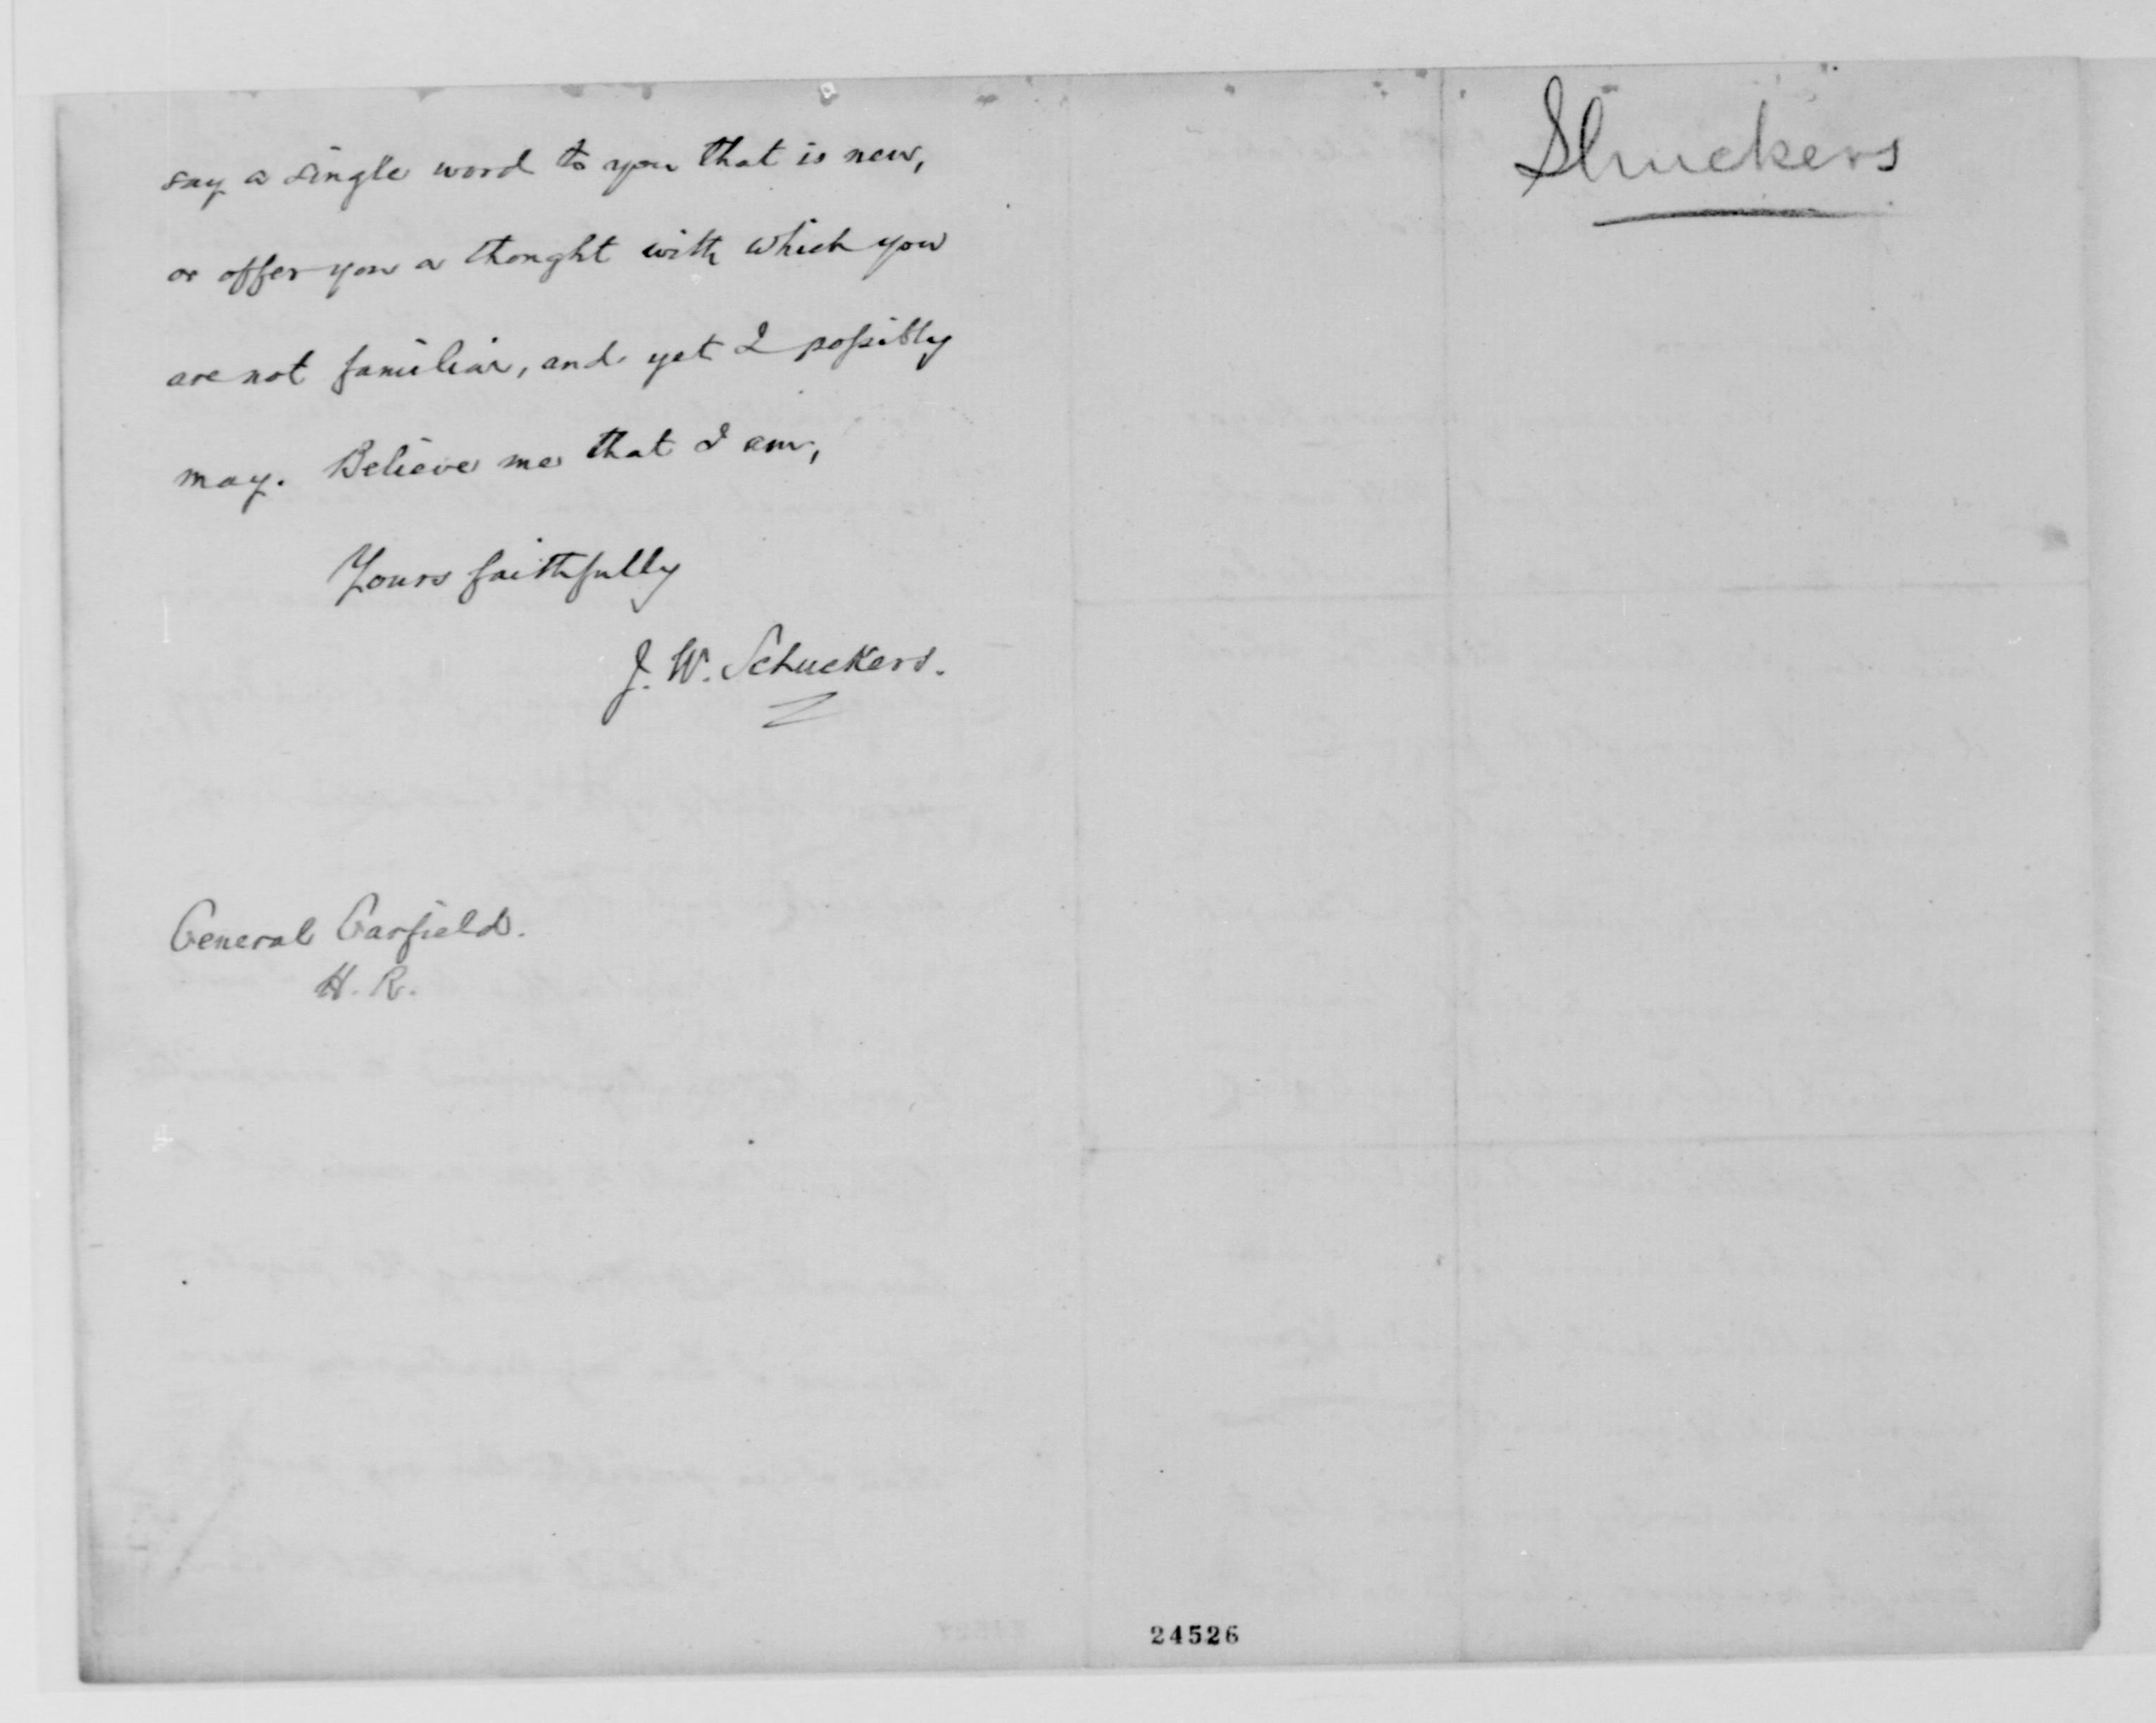 say a single word to you that is new,
or offer you a thought with which you
are not familiar, and yet I possibly
may. Believe me that I am,
Yours faithfully
J. W. Schuckers.
General Garfield.
H. R.
Shuckers
24526